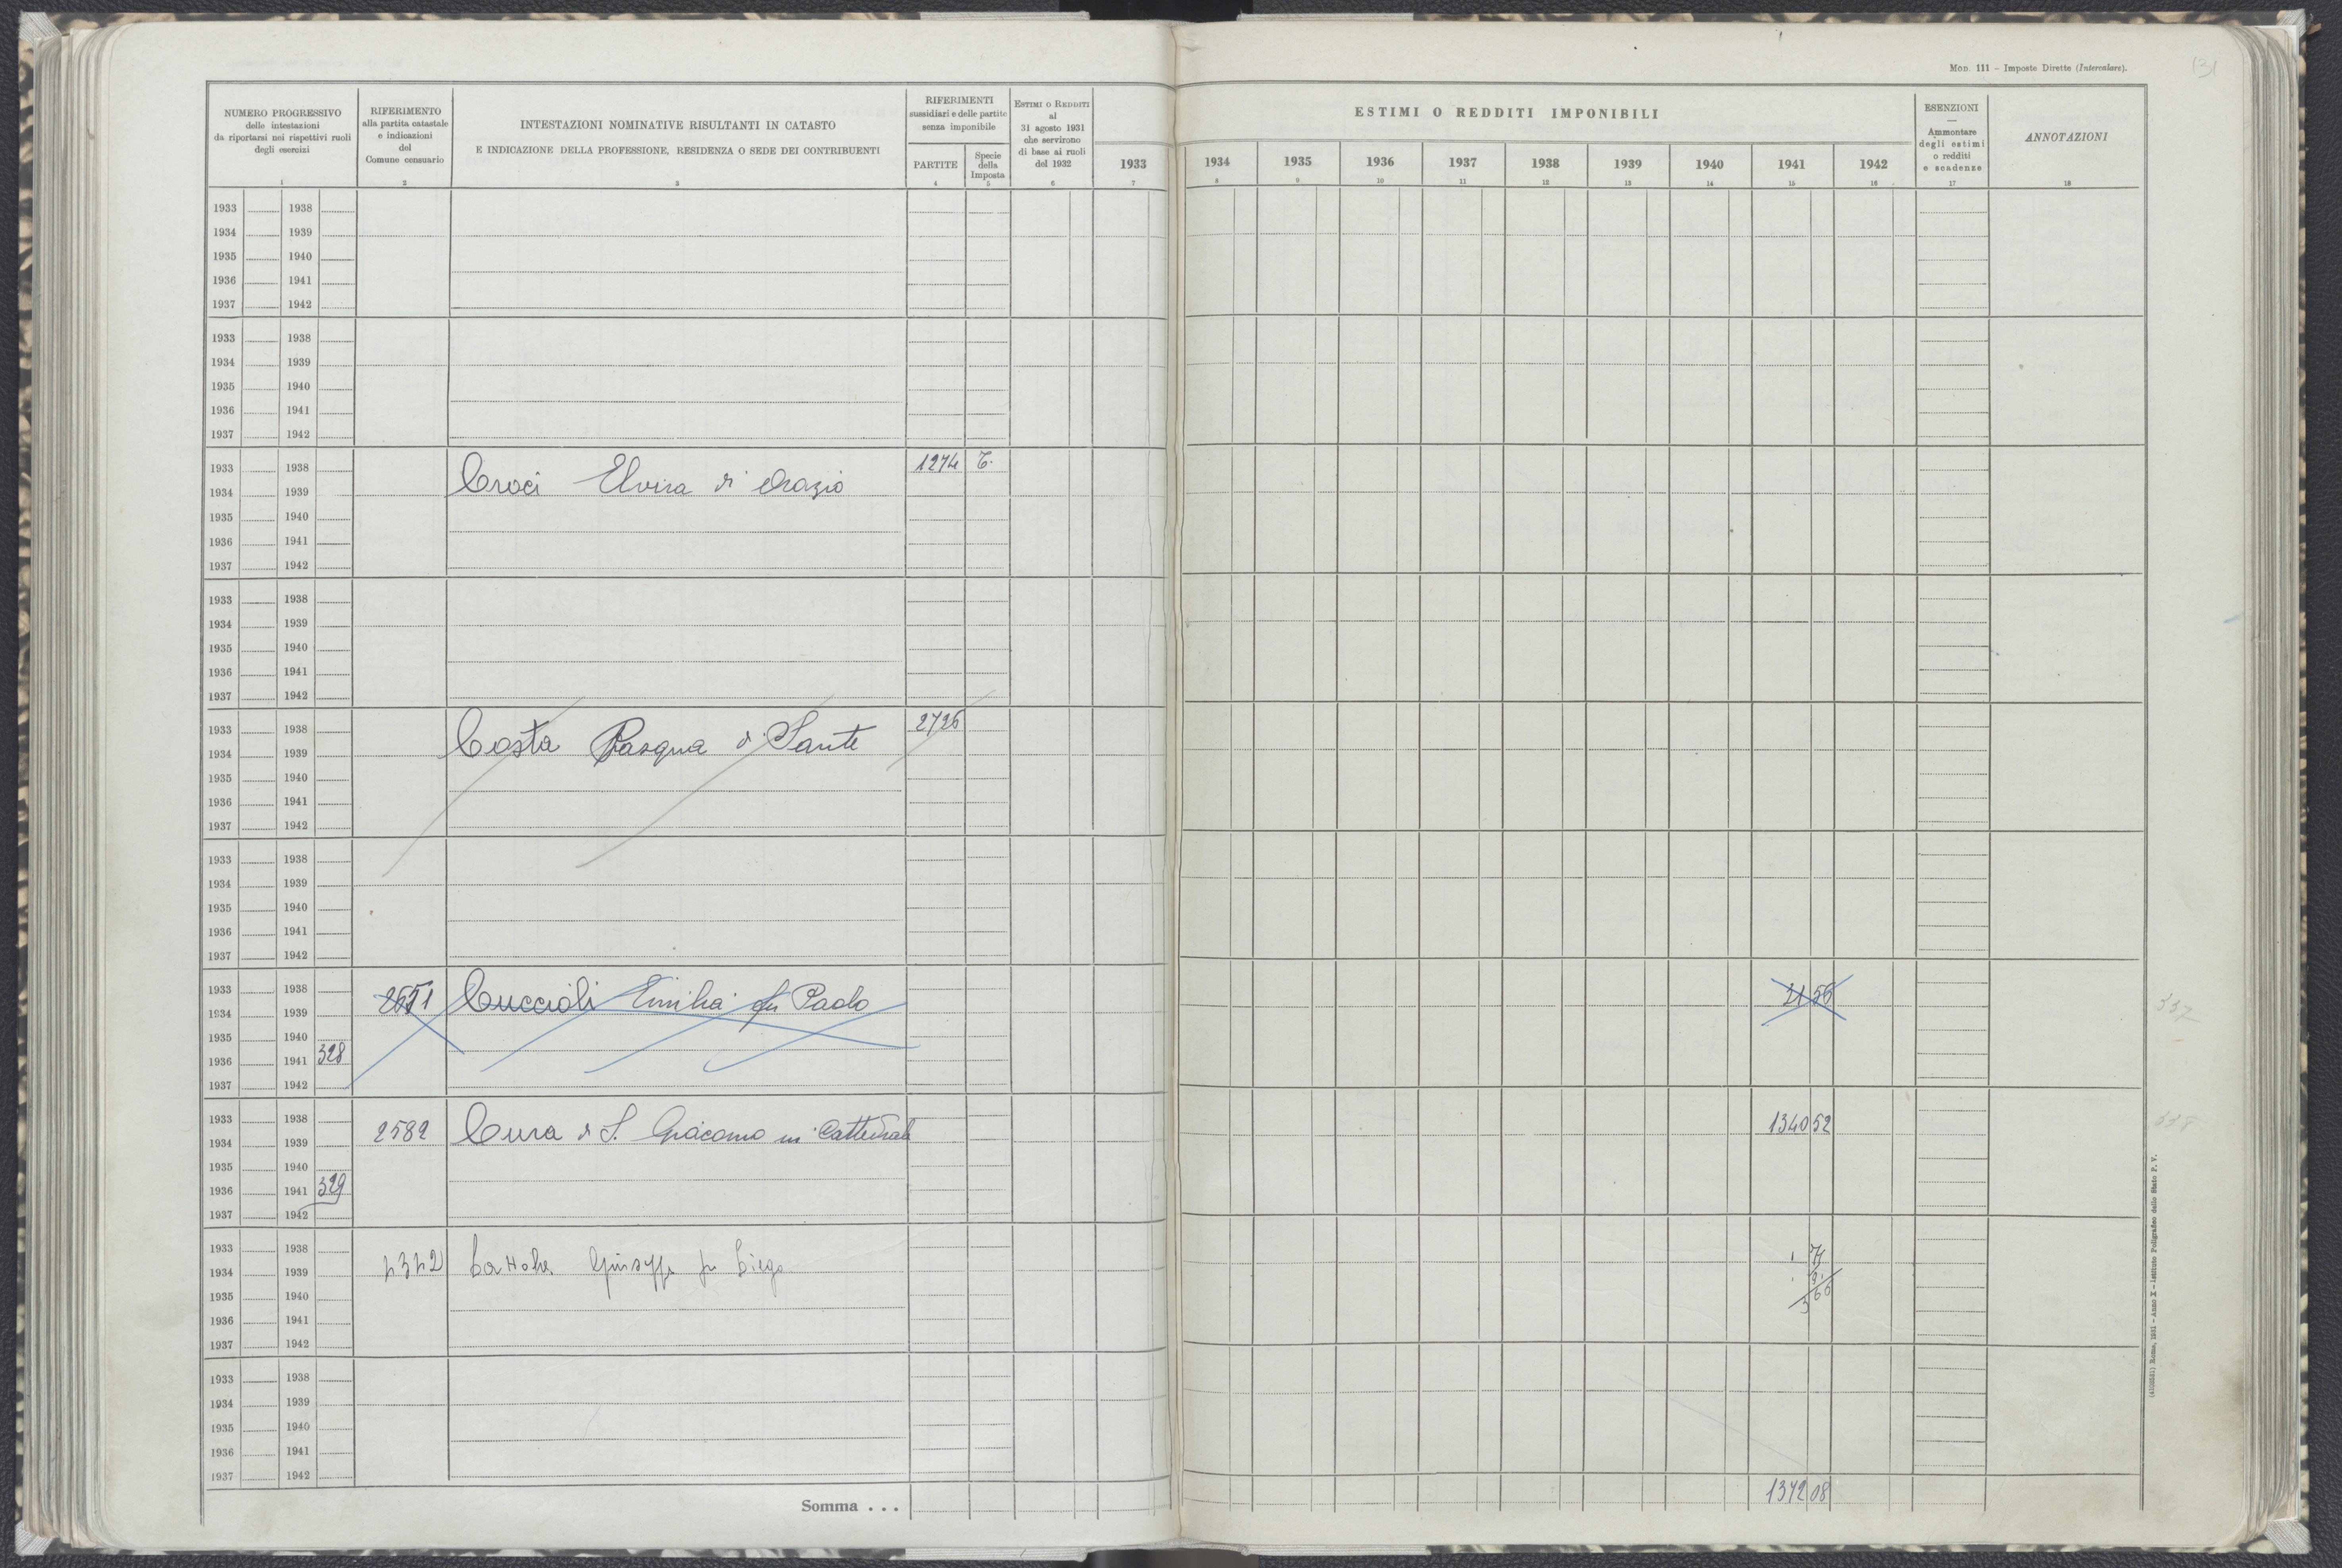 Mod. 111 – Imposte Dirette (Intercalare).
131
NUMERO PROGRESSIVO
delle intestazioni
da riportarsi nei rispettivi ruoli
degli esercizi
1
RIFERIMENTO
alla partita catastale
e indicazioni
del
Comune censuario
2
INTESTAZIONI NOMINATIVE RISULTANTI IN CATASTO
E INDICAZIONE DELLA PROFESSIONE, RESIDENZA O SEDE DEI CONTRIBUENTI
3
RIFERIMENTI
sussidiari e delle partite
senza imponibile
PARTITE
4
Specie
della
Imposta
5
ESTIMI O REDDITI
al
31 agosto 1931
che servirono
di base ai ruoli
del 1932
6
ESTIMI O REDDITI IMPONIBILI
1933 1934 1935 1936 1937 1938 1939 1940 1941 1942
7 8 9 10 11 12 13 14 15 16
ESENZIONI
—
Ammontare
degli estimi
o redditi
e scadenze
17
ANNOTAZIONI
18
1933 1938
1934 1939
1935 1940
1936 1941
1937 1942
1933 1938
1934 1939
1935 1940
1936 1941
1937 1942
1933 1938 1274 T.
1934 1939 Croci Elvira di Orazio
1935 1940
1936 1941
1937 1942
1933 1938
1934 1939
1935 1940
1936 1941
1937 1942
1933 1938 2726
1934 1939 Costa Pasqua di Sante
1935 1940
1936 1941
1937 1942
1933 1938
1934 1939
1935 1940
1936 1941
1937 1942
1933 1938
1934 1939 2551 Cuccioli Emilia fu Paolo 21 56 337
1935 1940
1936 1941 328
1937 1942
1933 1938
1934 1939 2582 Cura di S. Giacomo in Cattedrale 1340 52 338
1935 1940
1936 1941 329
1937 1942
1933 1938
1934 1939 Giuseppe fu
1935 1940
1936 1941
1937 1942
1933 1938
1934 1939
1935 1940
1936 1941
1937 1942
Somma . . . 1372 08
Roma, 1931 – Anno X – Istituto Poligrafico dello Stato P. V.